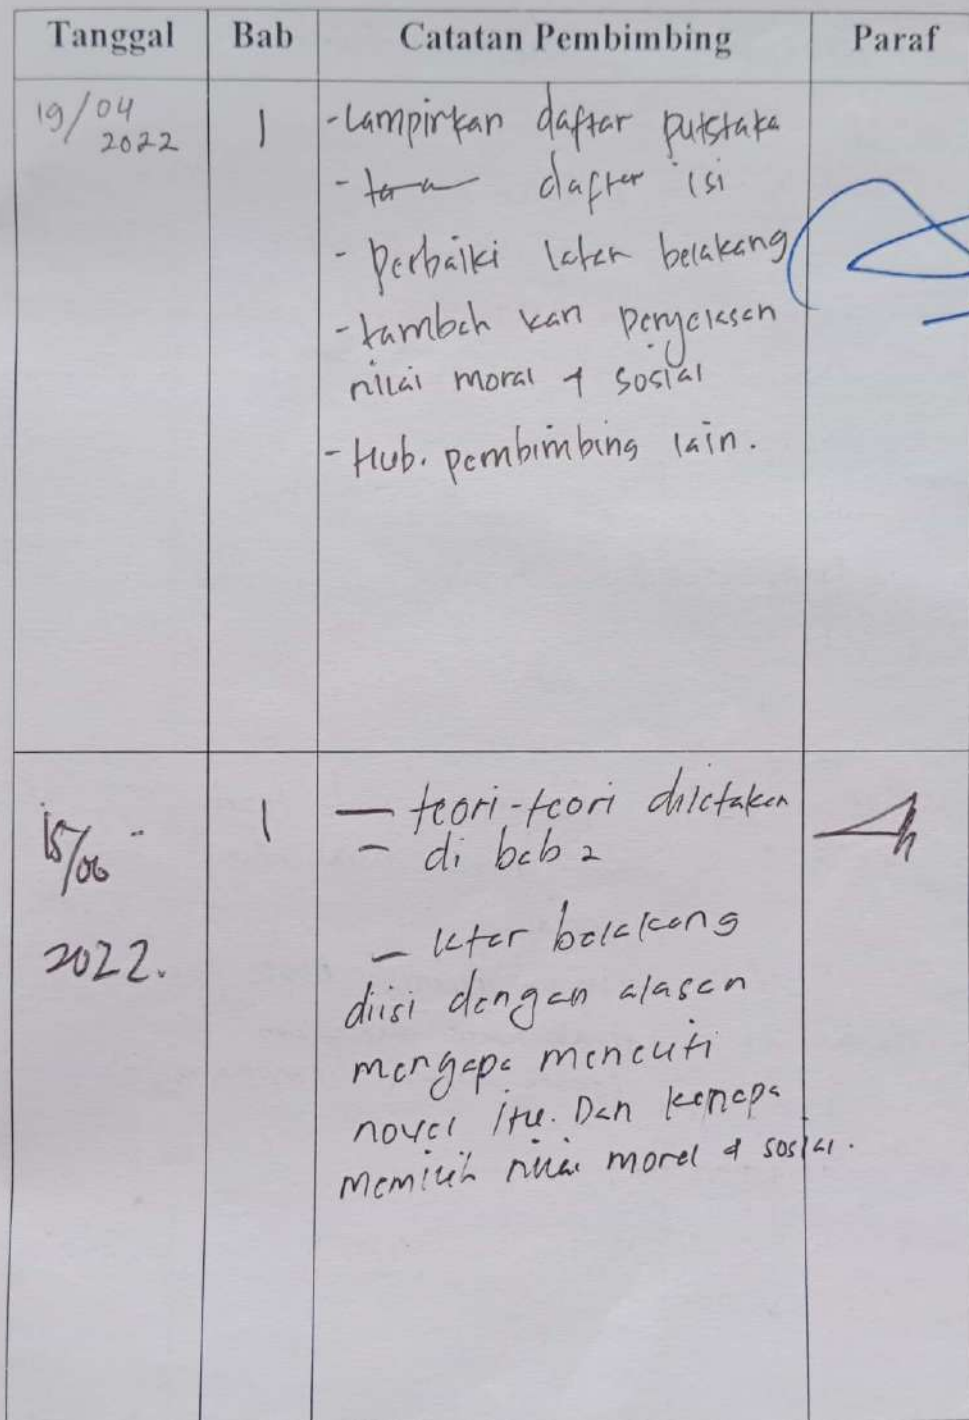 Tanggal Bab Catatan Pembimbing Paraf
19/04 1 -Lampirkan daftar putstaka
2022
- daftar isi
- Perbaiki latar belakang
-tambah kan penjelasan
nilai moral & sosial
- Hub. pembimbing lain.
15/06 1 — teori-teori diletakan
– di bab 2
2022.
— latar belakang
diisi dengan alasan
mengapa meneliti
novel itu. Dan kenapa
memilih nilai moral & sosial.